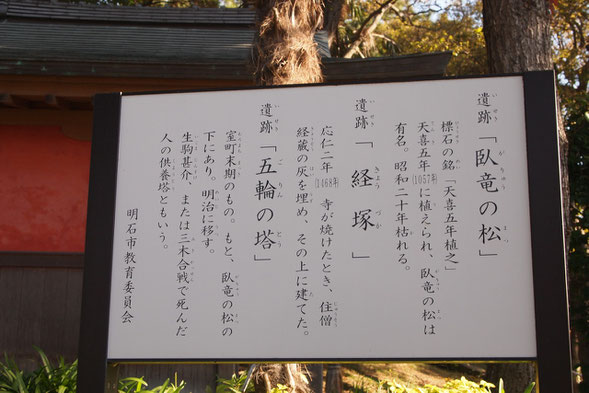 遺跡「臥竜の松」
標石の銘「天喜五年植之」
天喜五年(1057年)に植えられ、臥竜の松は
有名。昭和二十年枯れる。
遺跡「経塚」
応仁二年(1468年)寺が焼けたとき、住僧
経蔵の灰を埋め、その上に建てた。
遺跡「五輪の塔」
室町末期のもの。もと、臥竜の松の
下にあり。明治に移す。
生駒甚介、または三木合戦で死んだ
人の供養塔ともいう。
明石市教育委員会